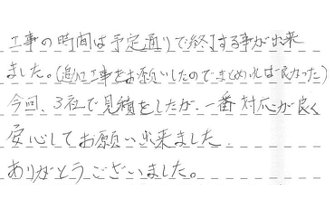 工事の時間は予定通りで終了する事が出来
ました。(追加工事をお願いしたのでまとめれば良かった)
今回、3社で見積をしたが、一番対応が良く
安心してお願い出来ました
ありがとうございました。